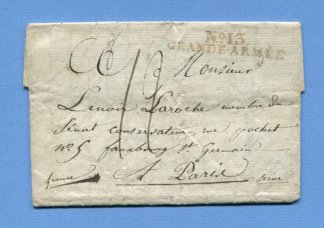 No. 13
GRANDE-ARMÉE
A Monsieur
Lenoir Laroche membre du
Sénat conservateur, rue pochet
no. 5 fauxbourg St. Germain
france A Paris seine